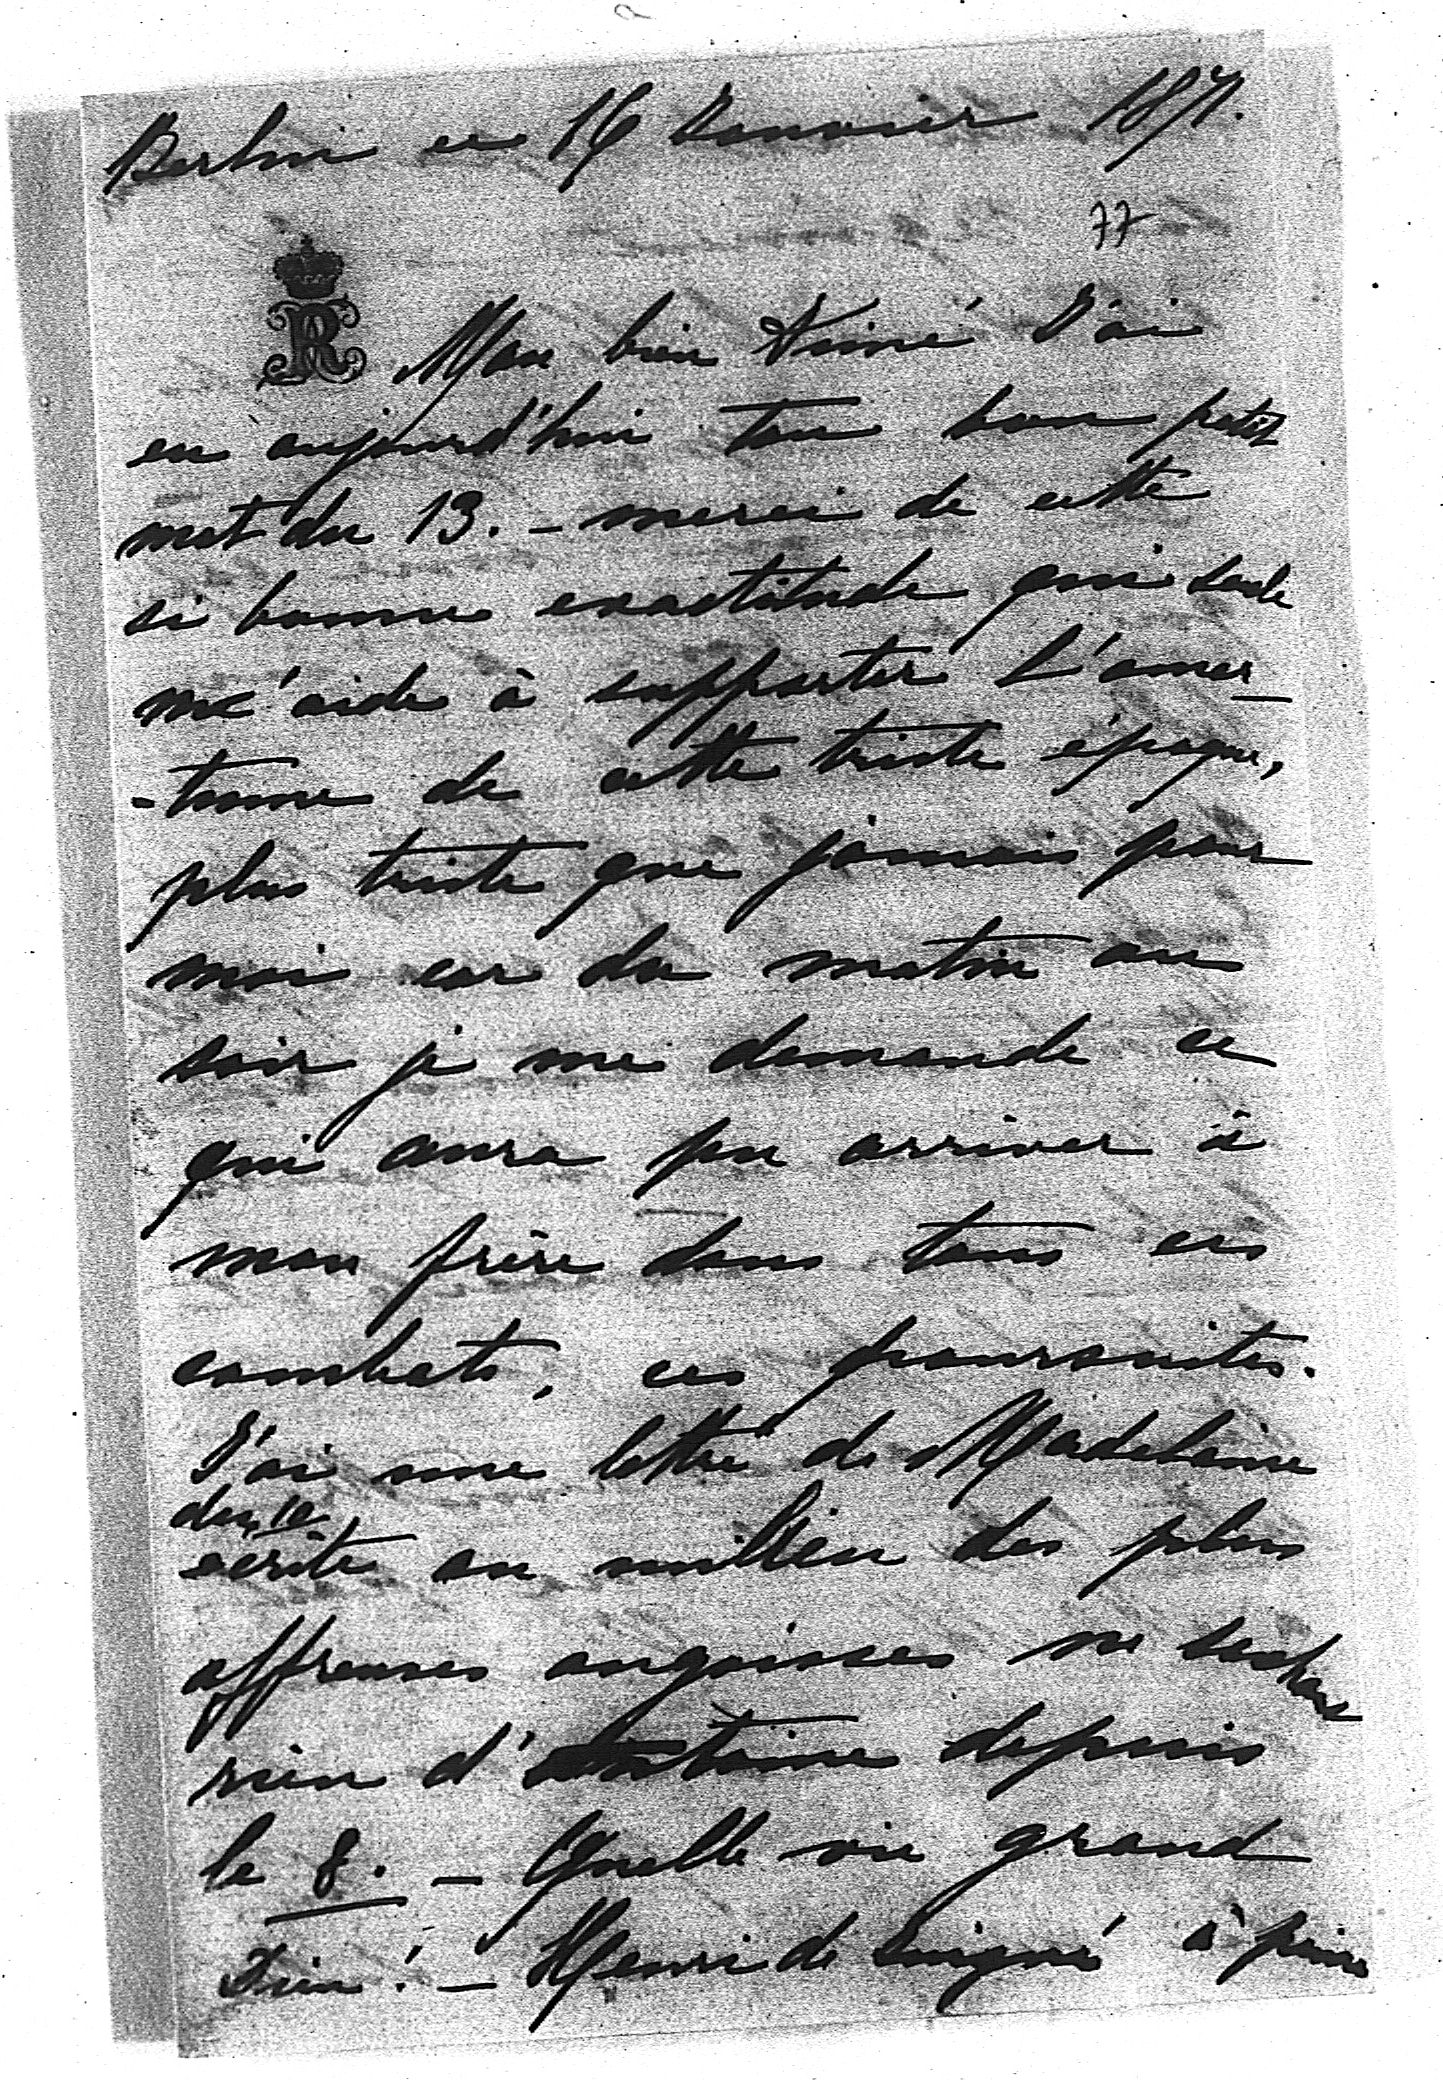 Berlin ce 16 Janvier 1871.
77
R
Mon bien Aimé J'ai
eu aujourd'hui ton bon petit
mot du 13. – merci de cette
si bonne exactitude qui seule
m'aide à supporter l'amer
-tume de cette triste époque,
plus triste que jamais pour
moi car du matin au
soir je me demande ce
qui aura pu arriver à
mon frère dans tous ces
combats, ces poursuites.
J'ai une lettre de Madelaine
du 10
écrite au milieu des plus
affreuses angoisses ne sachant
rien d'Antoine depuis
le 8. – Quelle vie grand
Dieu! – Henri de à peine